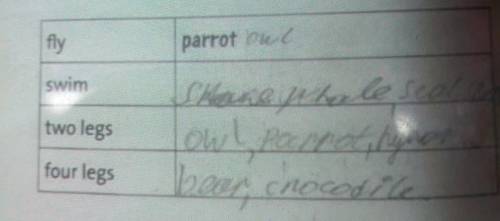 fly parrot owl
swim whale, seal
two legs owl, parrot,
four legs bear, crocodile